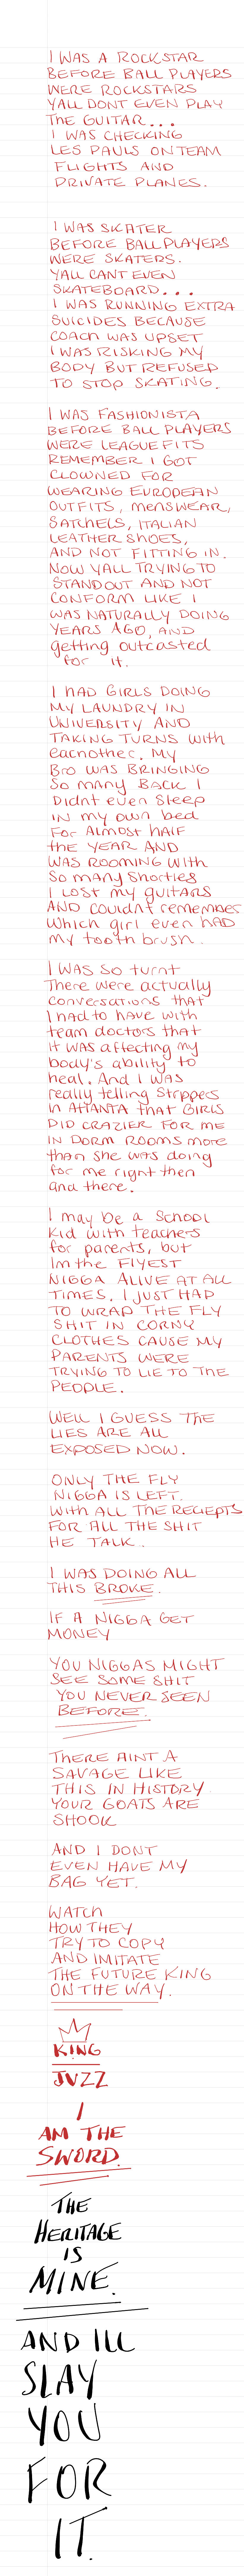 I WAS A ROCKSTAR
BEFORE BALL PLAYERS
WERE ROCKSTARS
YALL DONT EVEN PLAY
THE GUITAR...
I WAS CHECKING
LES PAULS ON TEAM
FLIGHTS AND
PRIVATE PLANES.
I WAS SKATER
BEFORE BALL PLAYERS
WERE SKATERS.
YALL CANT EVEN
SKATEBOARD...
I WAS RUNNING EXTRA
SUICIDES BECAUSE
COACH WAS UPSET
I WAS RISKING MY
BODY BUT REFUSED
TO STOP SKATING.
I WAS FASHIONISTA
BEFORE BALL PLAYERS
WERE LEAGUE FITS
REMEMBER I GOT
CLOWNED FOR
WEARING EUROPEAN
OUTFITS, MENSWEAR,
SATCHELS, ITALIAN
LEATHER SHOES,
AND NOT FITTING IN.
NOW YALL TRYING TO
STANDOUT AND NOT
CONFORM LIKE I
WAS NATURALLY DOING
YEARS AGO, AND
getting outcasted
for it.
I HAD GIRLS DOING
MY LAUNDRY IN
UNIVERSITY AND
TAKING TURNS with
eachother. My
Bro WAS BRINGING
So many BACK I
Didnt even Sleep
IN my own bed
For Almost half
the YEAR AND
WAS ROOMING WITH
So many Shorties
I lost my guitars
AND Couldnt remember
Which girl even HAD
My tooth brush.
I WAS So turnt
There were actually
conversations that
I had to have with
team doctors that
it was affecting my
body's ability to
heal. And I was
really telling Strippers
in AtlANTA that GIRLS
DID CRAZIER FOR ME
IN DORM ROOMS more
than She was doing
for me right then
and there.
I may be a School
Kid with teachers
for parents, but
Im the FlYEST
NIGGA ALIVE AT ALL
TIMES. I JUST HAD
TO WRAP THE FLY
SHIT IN CORNY
CLOTHES CAUSE MY
PARENTS WERE
TRYING TO LIE TO THE
PEOPLE.
WELL I GUESS THE
LIES ARE ALL
EXPOSED NOW.
ONLY THE FLY
NIGGA IS LEFT.
With ALL THE RECIEPTS
FOR ALL THE SHIT
HE TALK.
I WAS DOING ALL
THIS BROKE.
IF A NIGGA GET
MONEY
YOU NIGGAS MIGHT
SEE SOME SHIT
YOU NEVER SEEN
BEFORE.
THERE AINT A
SAVAGE LIKE
THIS IN HISTORY.
YOUR GOATS ARE
SHOOK
AND I DONT
EVEN HAVE MY
BAG YET.
WATCH
HOW THEY
TRY TO COPY
AND IMITATE
THE FUTURE KING
ON THE WAY.
KING
JVZZ
I
AM THE
SWORD.
THE
HERITAGE
IS
MINE.
AND ILL
SLAY
YOU
FOR
IT.